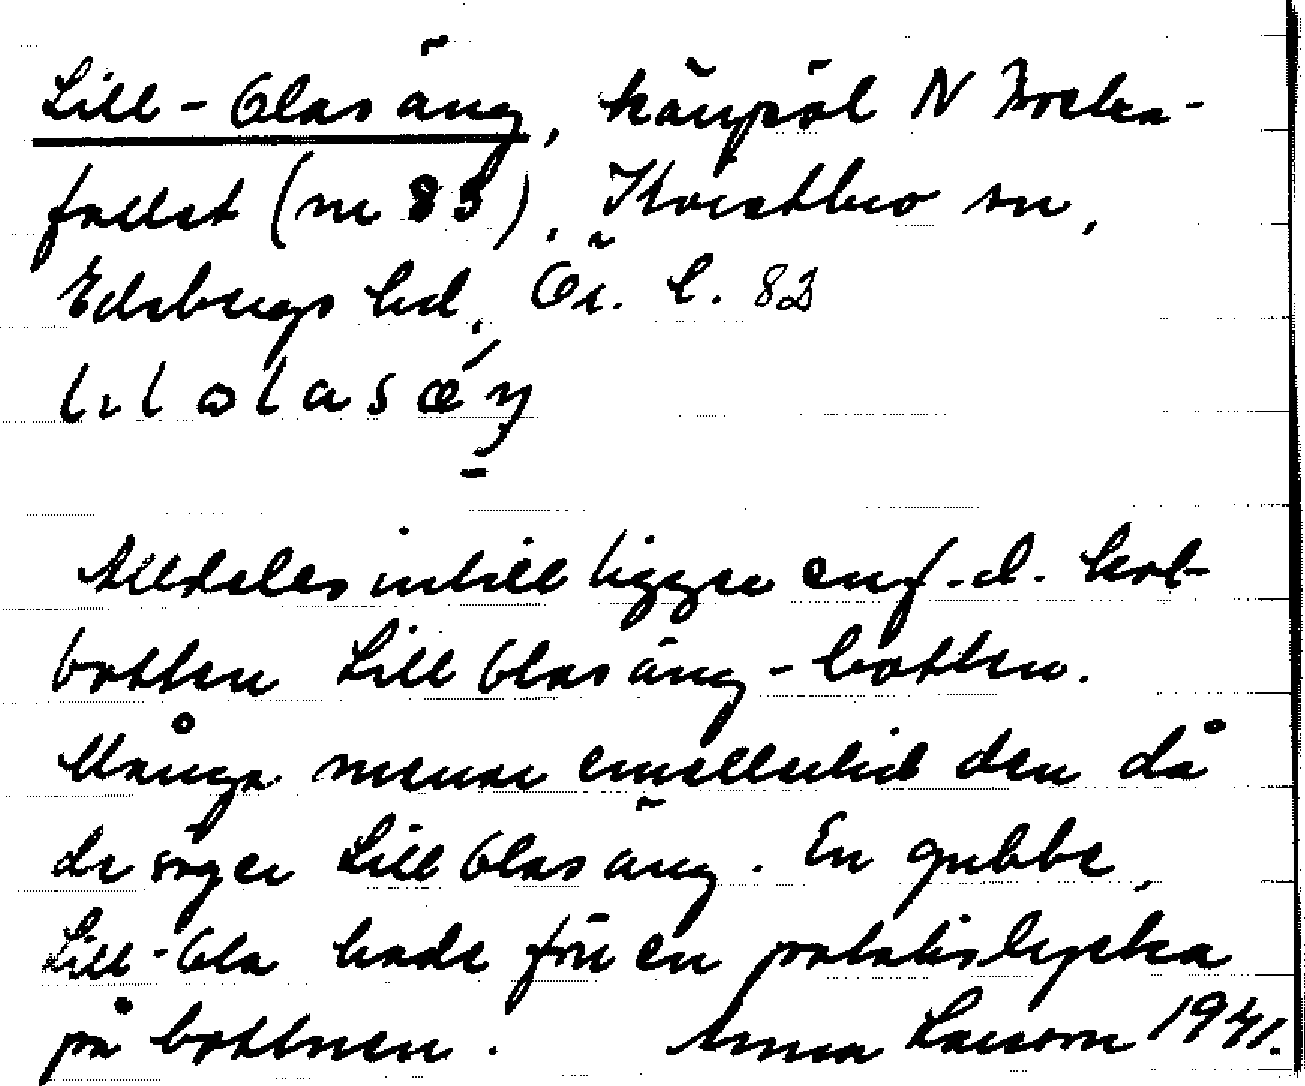 Lill-Olasäng, kärrpöl N
fallet (nr 83), Kvistbro sn,
Edsbergs hd, Ör. l. 83
lılolasǽŋ
Alldeles intill ligger en f.d. kol-
botten Lill Olasäng-botten.
Många menar emellertid den då
de säger Lill Olasäng. En gubbe,
Lill-Ola hade förr en potatislycka
på bottnen. Anna Larsson 1941.